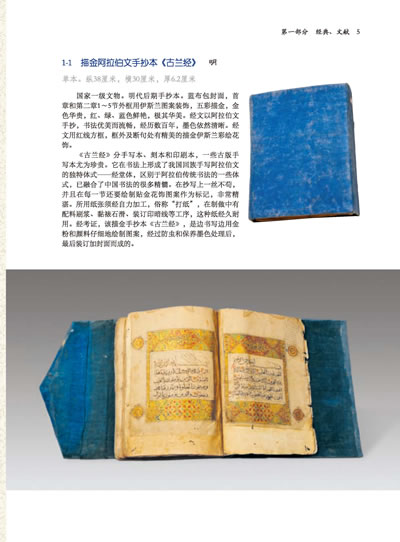 第一部分 经典、文献 5
1-1 描金阿拉伯文手抄本《古兰经》 明
单本。纵38厘米，横30厘米，厚6.2厘米
国家一级文物。明代后期手抄本。蓝布包封面，首
章和第二章1～5节外框用伊斯兰图案装饰，五彩描金，金
色华贵，红、绿、蓝色鲜艳，极其华美。经文以阿拉伯文
手抄，书法优美而流畅，经历数百年，墨色依然清晰。经
文用红线方框，框外及断句处有精美的描金伊斯兰彩绘花
饰。
《古兰经》分手写本、刻本和印刷本，一些古版手
写本尤为珍贵。它在书法上形成了我国回族手写阿拉伯文
的独特体式——经堂体，区别于阿拉伯传统书法的一些体
式，已融合了中国书法的很多精髓。在抄写上一丝不苟，
并且在每一节还要绘制贴金花饰图案作为标记，非常精
湛。所用纸张须经自力加工，俗称“打纸”，在制做中有
配料刷浆、黏裱石滑、装订印晒线等工序，这种纸经久耐
用。经考证，该描金手抄本《古兰经》，是边书写边用金
粉和颜料仔细地绘制图案，经过防虫和保养墨色处理后，
最后装订加封面而成的。